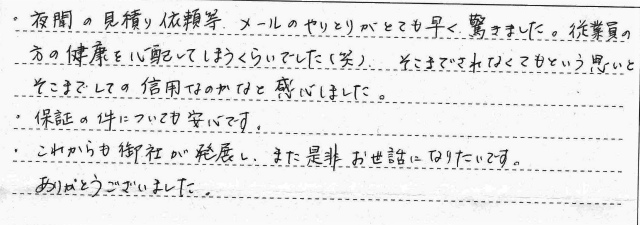 ・夜間の見積り依頼等 メールのやりとりがとても早く驚きました。従業員の
方の健康を心配してしまうくらいでした(笑) そこまでされなくてもという思いと
そこまでしての信用なのかなと感心しました。
・保証の件についても安心です。
・これからも御社が発展し、また是非お世話になりたいです。
ありがとうございました。